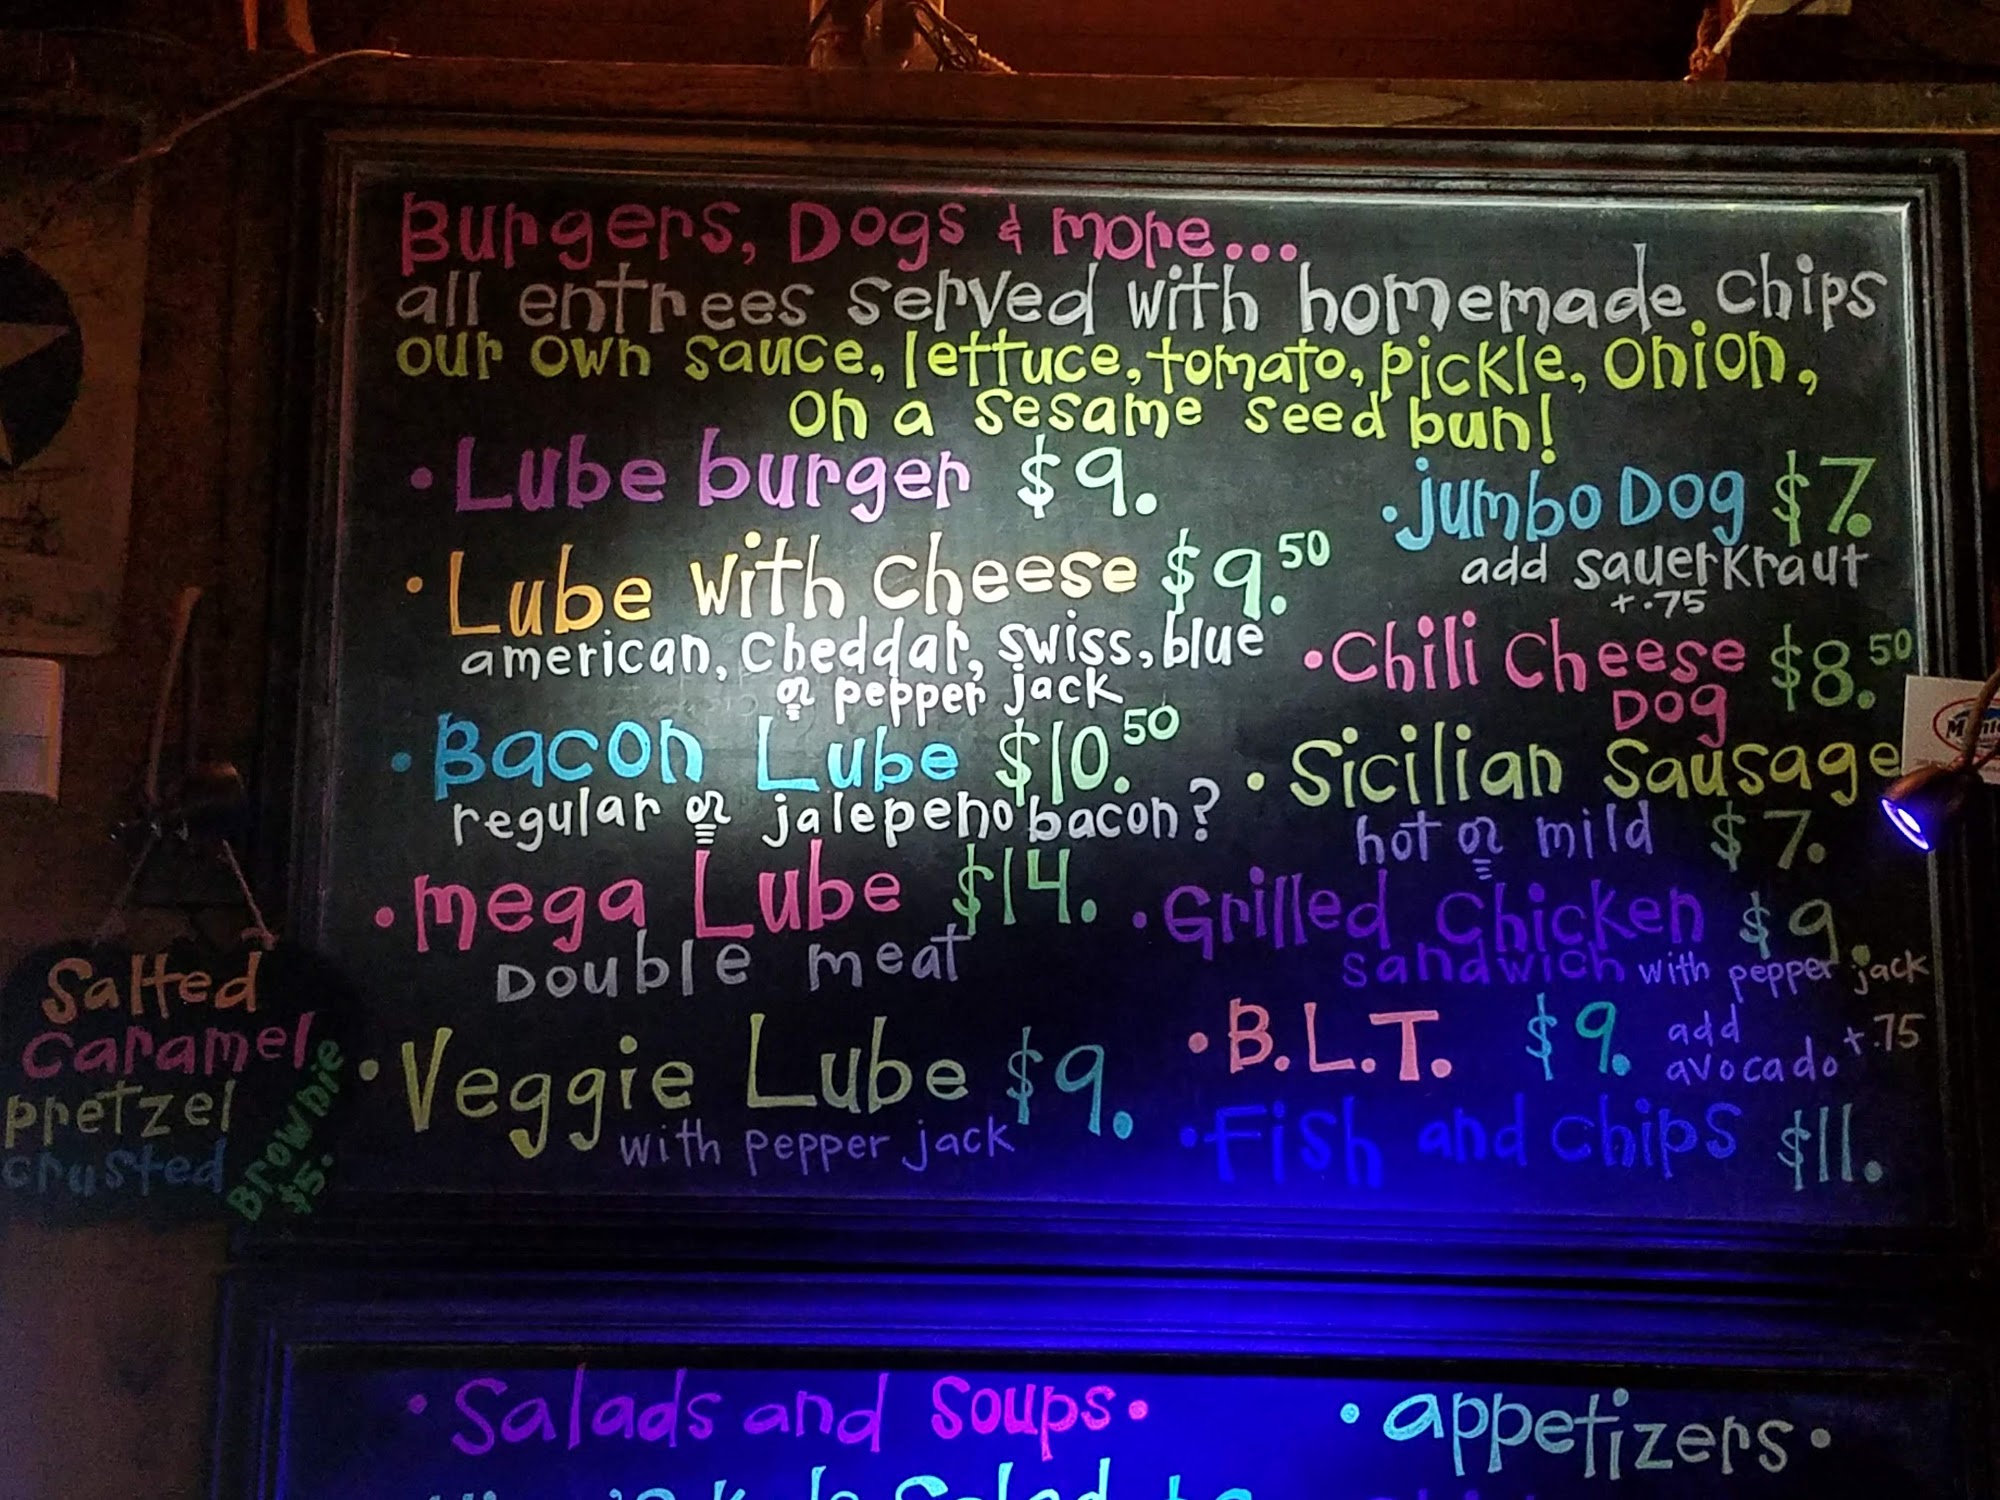 Burgers, Dogs & more...
all entrees served with homemade chips
our own sauce, lettuce, tomato, pickle, onion,
on a sesame seed bun!
• Lube burger $9.
• Lube with cheese $9.50
american, cheddar, swiss, blue
or pepper jack
• Bacon Lube $10.50
regular or jalepeno bacon?
• mega Lube $14.
Double meat
• Veggie Lube $9.
with pepper jack
• Jumbo Dog $7.
add sauerkraut
+.75
• Chili Cheese $8.50
Dog
• Sicilian Sausage
hot or mild $7.
• Grilled Chicken $9.
sandwich with pepper jack
• B.L.T. $9. add
avocado +.75
• Fish and chips $11.
Salted
Caramel
pretzel
crusted
Brownie
$5.
• Salads and Soups •
• appetizers •